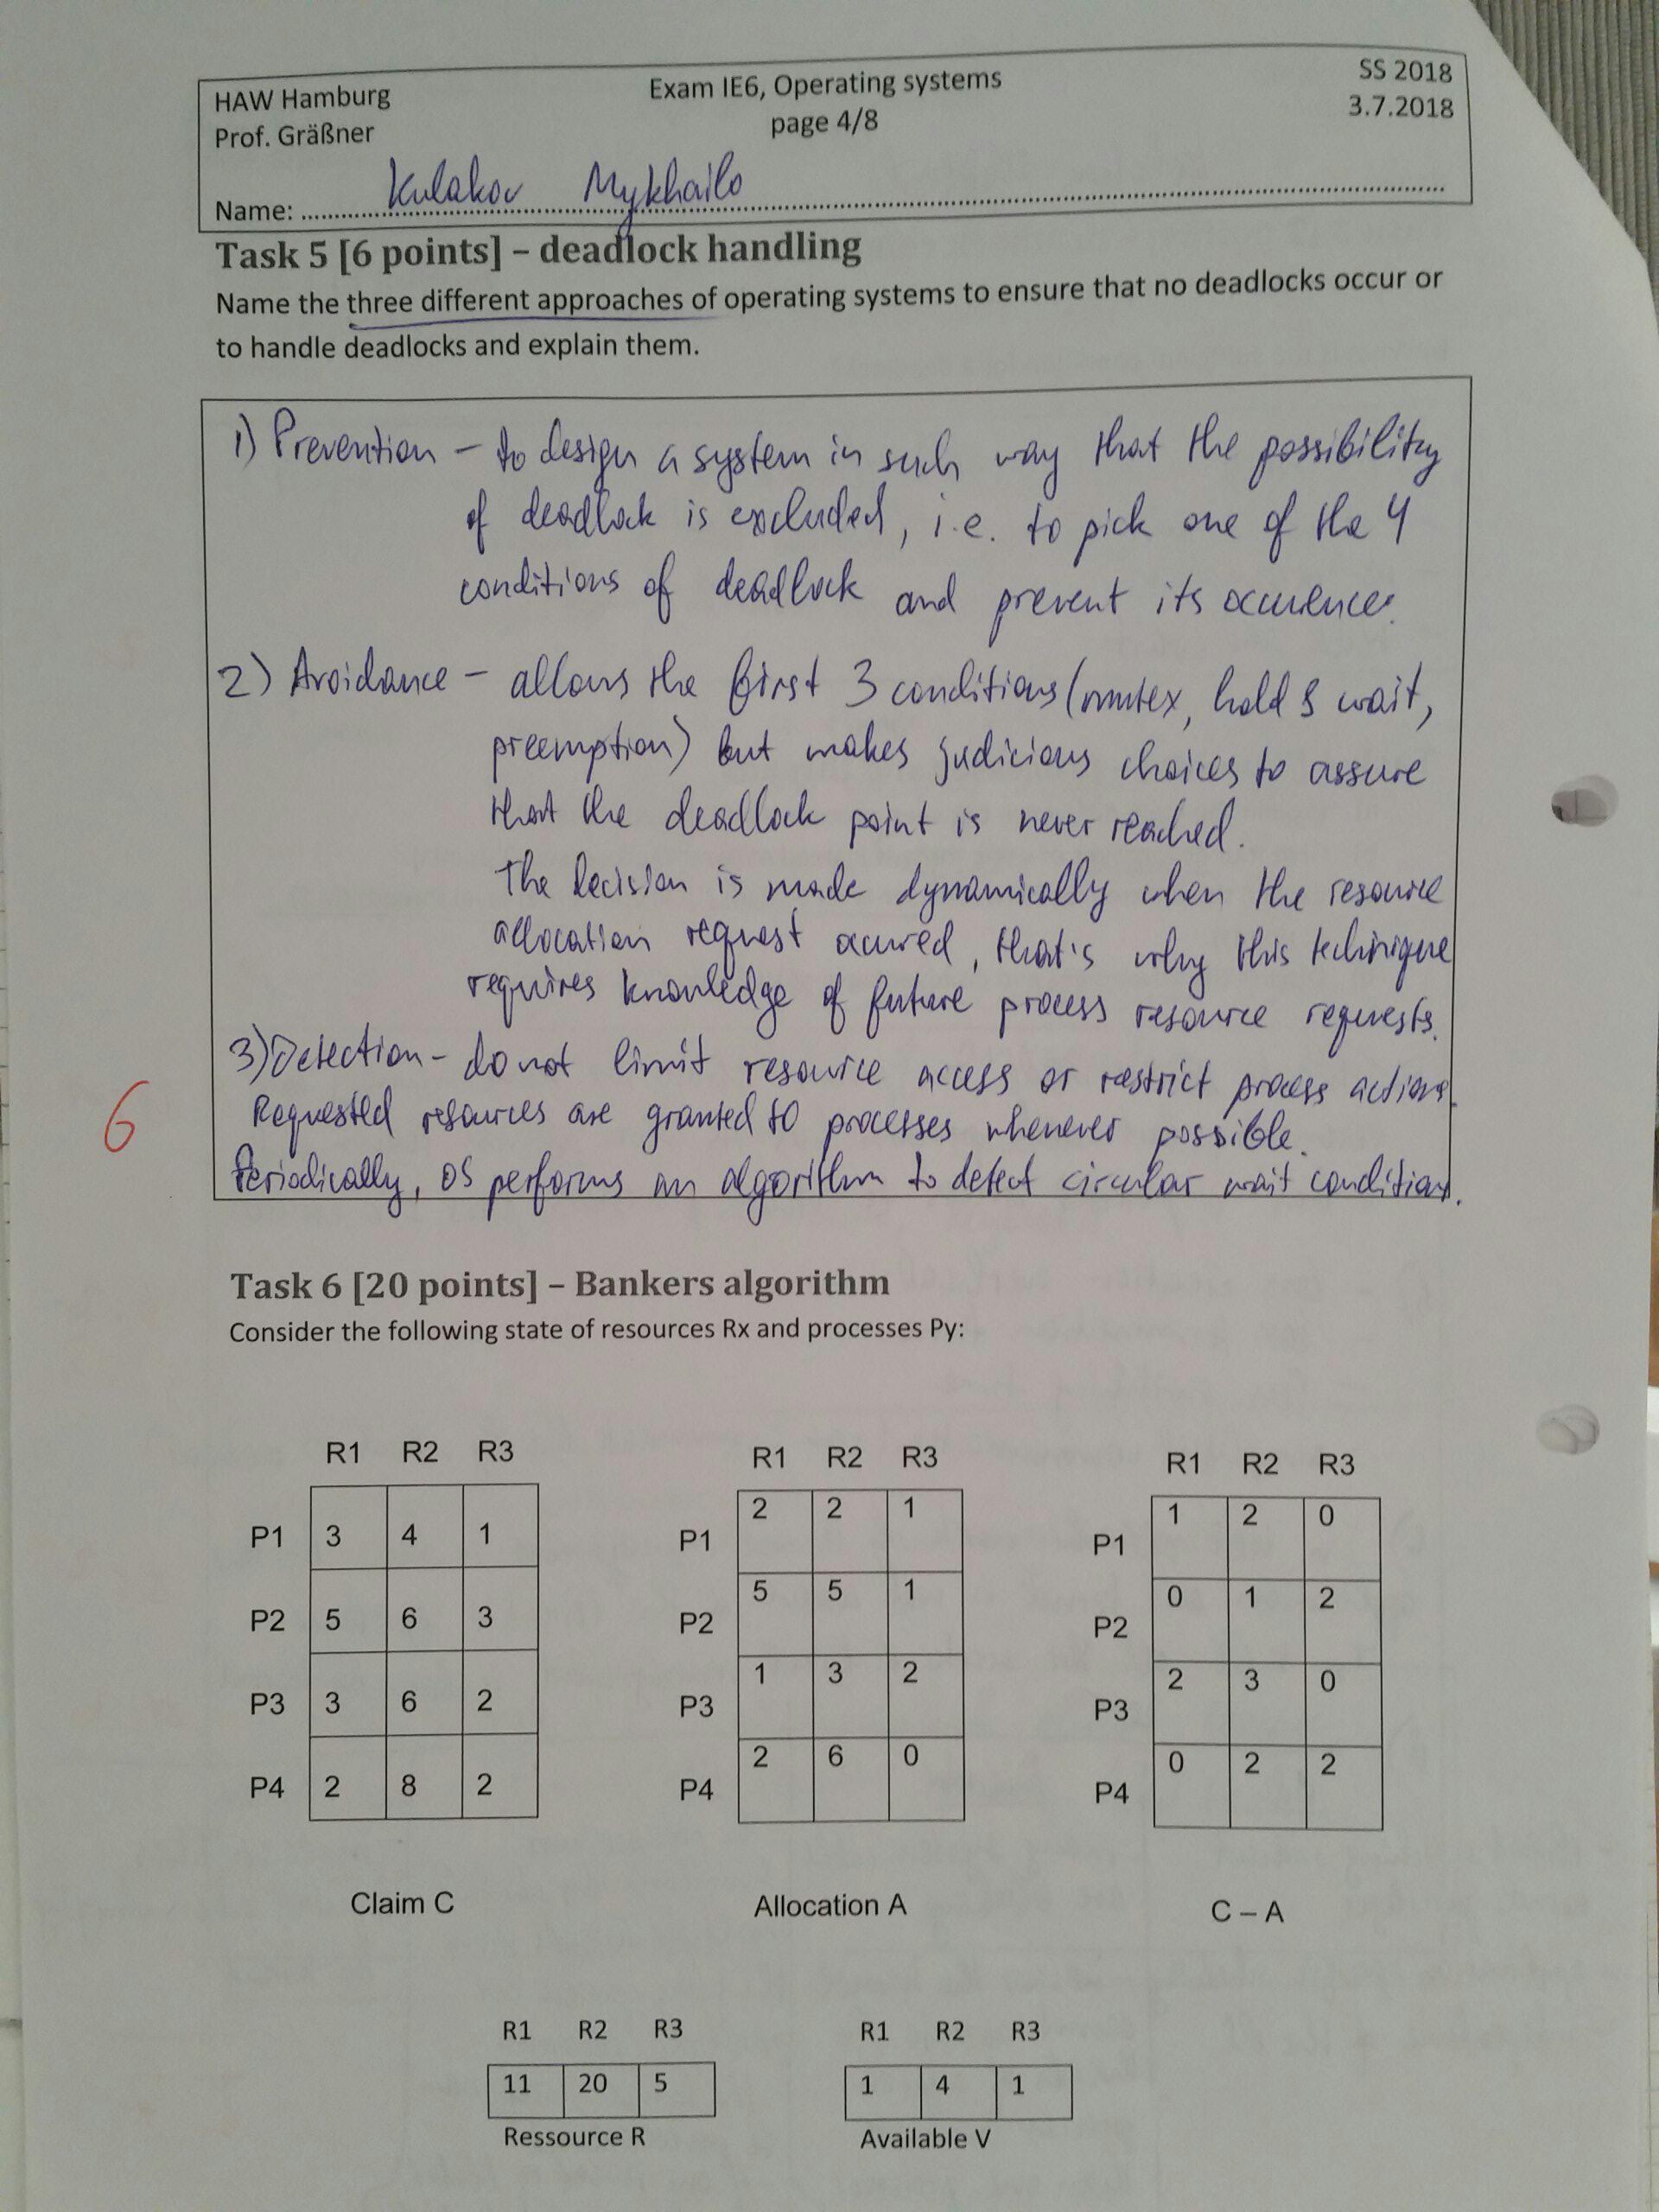 HAW Hamburg
Exam IE6, Operating systems
SS 2018
Prof. Gräßner
page 4/8
3.7.2018
Name: Kulakov Mykhailo
Task 5 [6 points] – deadlock handling
Name the three different approaches of operating systems to ensure that no deadlocks occur or
to handle deadlocks and explain them.
1) Prevention – to design a system in such way that the possibility
of deadlock is excluded, i.e. to pick one of the 4
conditions of deadlock and prevent its occurence.
2) Avoidance – allows the first 3 conditions (mutex, hold & wait,
preemption) but makes judicious choices to assure
that the deadlock point is never reached.
The decision is made dynamically when the resource
allocation request occured, that's why this technique
requires knowledge of future process resource requests.
3) Detection – do not limit resource access or restrict process actions.
Requested resources are granted to processes whenever possible.
6
Periodically, OS performs an algorithm to detect circular wait condition.
Task 6 [20 points] – Bankers algorithm
Consider the following state of resources Rx and processes Py:
R1 R2 R3
P1 3 4 1
P2 5 6 3
P3 3 6 2
P4 2 8 2
Claim C
R1 R2 R3
P1 2 2 1
P2 5 5 1
P3 1 3 2
P4 2 6 0
Allocation A
R1 R2 R3
P1 1 2 0
P2 0 1 2
P3 2 3 0
P4 0 2 2
C – A
R1 R2 R3
11 20 5
Ressource R
R1 R2 R3
1 4 1
Available V